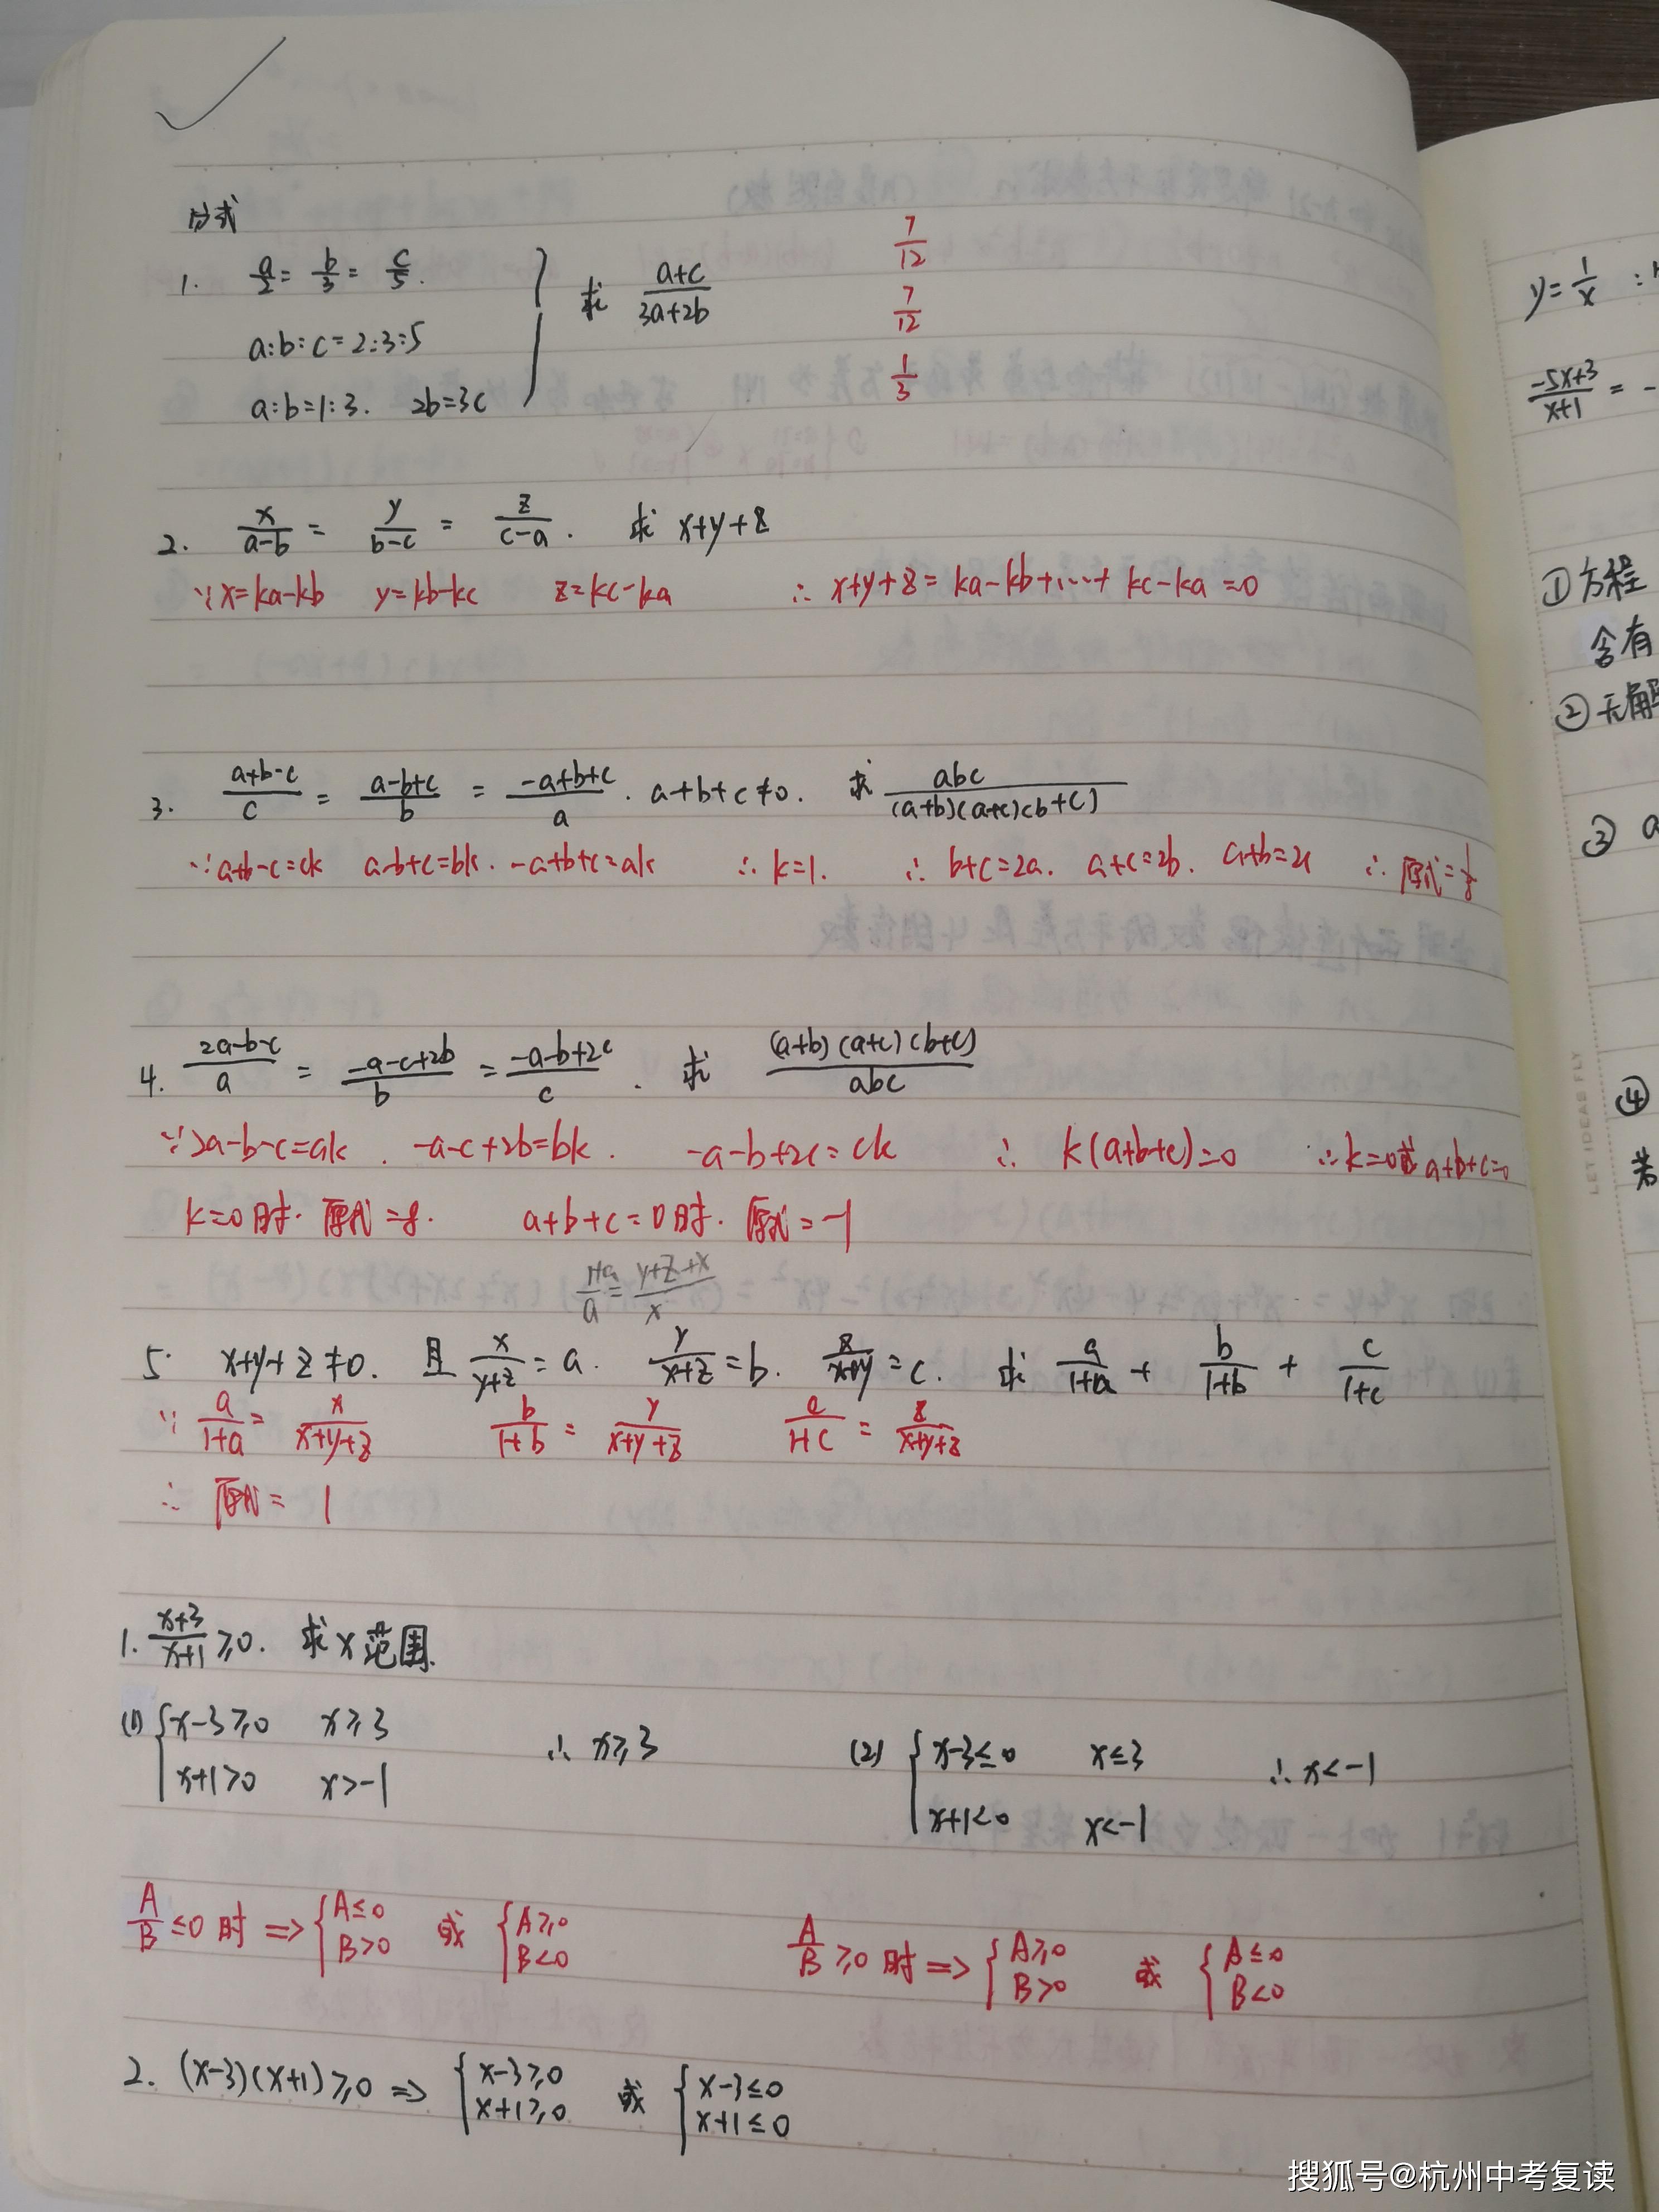 分式
1. a/2 = b/3 = c/5.
a:b:c=2:3:5 } 求 (a+c)/(3a+2b)
a:b=1:3. 2b=3c
7/12
7/12
1/3
2. x/(a-b) = y/(b-c) = z/(c-a). 求 x+y+z
∵x=ka-kb y=kb-kc z=kc-ka ∴ x+y+z=ka-kb+…+kc-ka=0
3. (a+b-c)/c = (a-b+c)/b = (-a+b+c)/a. a+b+c≠0. 求 abc/((a+b)(a+c)(b+c))
∵a+b-c=ck a-b+c=bk. -a+b+c=ak ∴k=1. ∴ b+c=2a. a+c=2b. a+b=2c ∴原式=1/8
4. (2a-b-c)/a = (-a-c+2b)/b = (-a-b+2c)/c. 求 ((a+b)(a+c)(b+c))/abc
∵2a-b-c=ak. -a-c+2b=bk. -a-b+2c=ck ∴ k(a+b+c)=0 ∴k=0或a+b+c=0
k=0时. 原式=8. a+b+c=0时. 原式=-1
(1+a)/a = (y+z+x)/x
5. x+y+z≠0. 且 x/(y+z)=a. y/(x+z)=b. z/(x+y)=c. 求 a/(1+a) + b/(1+b) + c/(1+c)
∵ a/(1+a) = x/(x+y+z) b/(1+b) = y/(x+y+z) c/(1+c) = z/(x+y+z)
∴ 原式= 1
1. (x+3)/(x+1) ≥0. 求x范围.
(1) { x-3≥0 x≥3 ∴ x≥3
x+1>0 x>-1
(2) { x-3≤0 x≤3 ∴ x<-1
x+1<0 x<-1
A/B ≤0时 => { A≤0 B>0 或 { A≥0 B<0
A/B ≥0时 => { A≥0 B>0 或 { A≤0 B<0
2. (x-3)(x+1)≥0 => { x-3≥0 x+1≥0 或 { x-3≤0 x+1≤0
y=1/x :
(-5x+3)/(x+1) = -
①方程
含有
②无解
③ a
④
若
LET IDEAS FLY
搜狐号@杭州中考复读